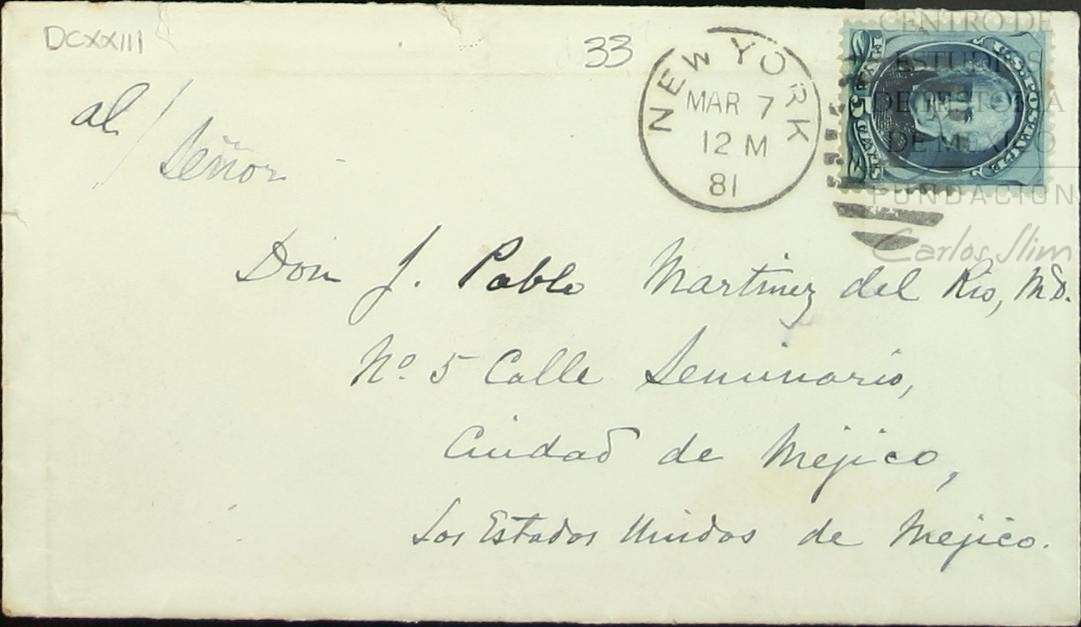 DCXXIII
33
NEW YORK
MAR 7
12 M
81
U.S. POSTAGE
CENTRO DE
ESTUDIOS
DE HISTORIA
DE MEXICO
FUNDACION
Carlos Slim
al
Señor
Don J. Pablo Martinez del Rio, M.D.
No. 5 Calle Seminario,
Ciudad de Méjico,
Los Estados Unidos de Mejico.